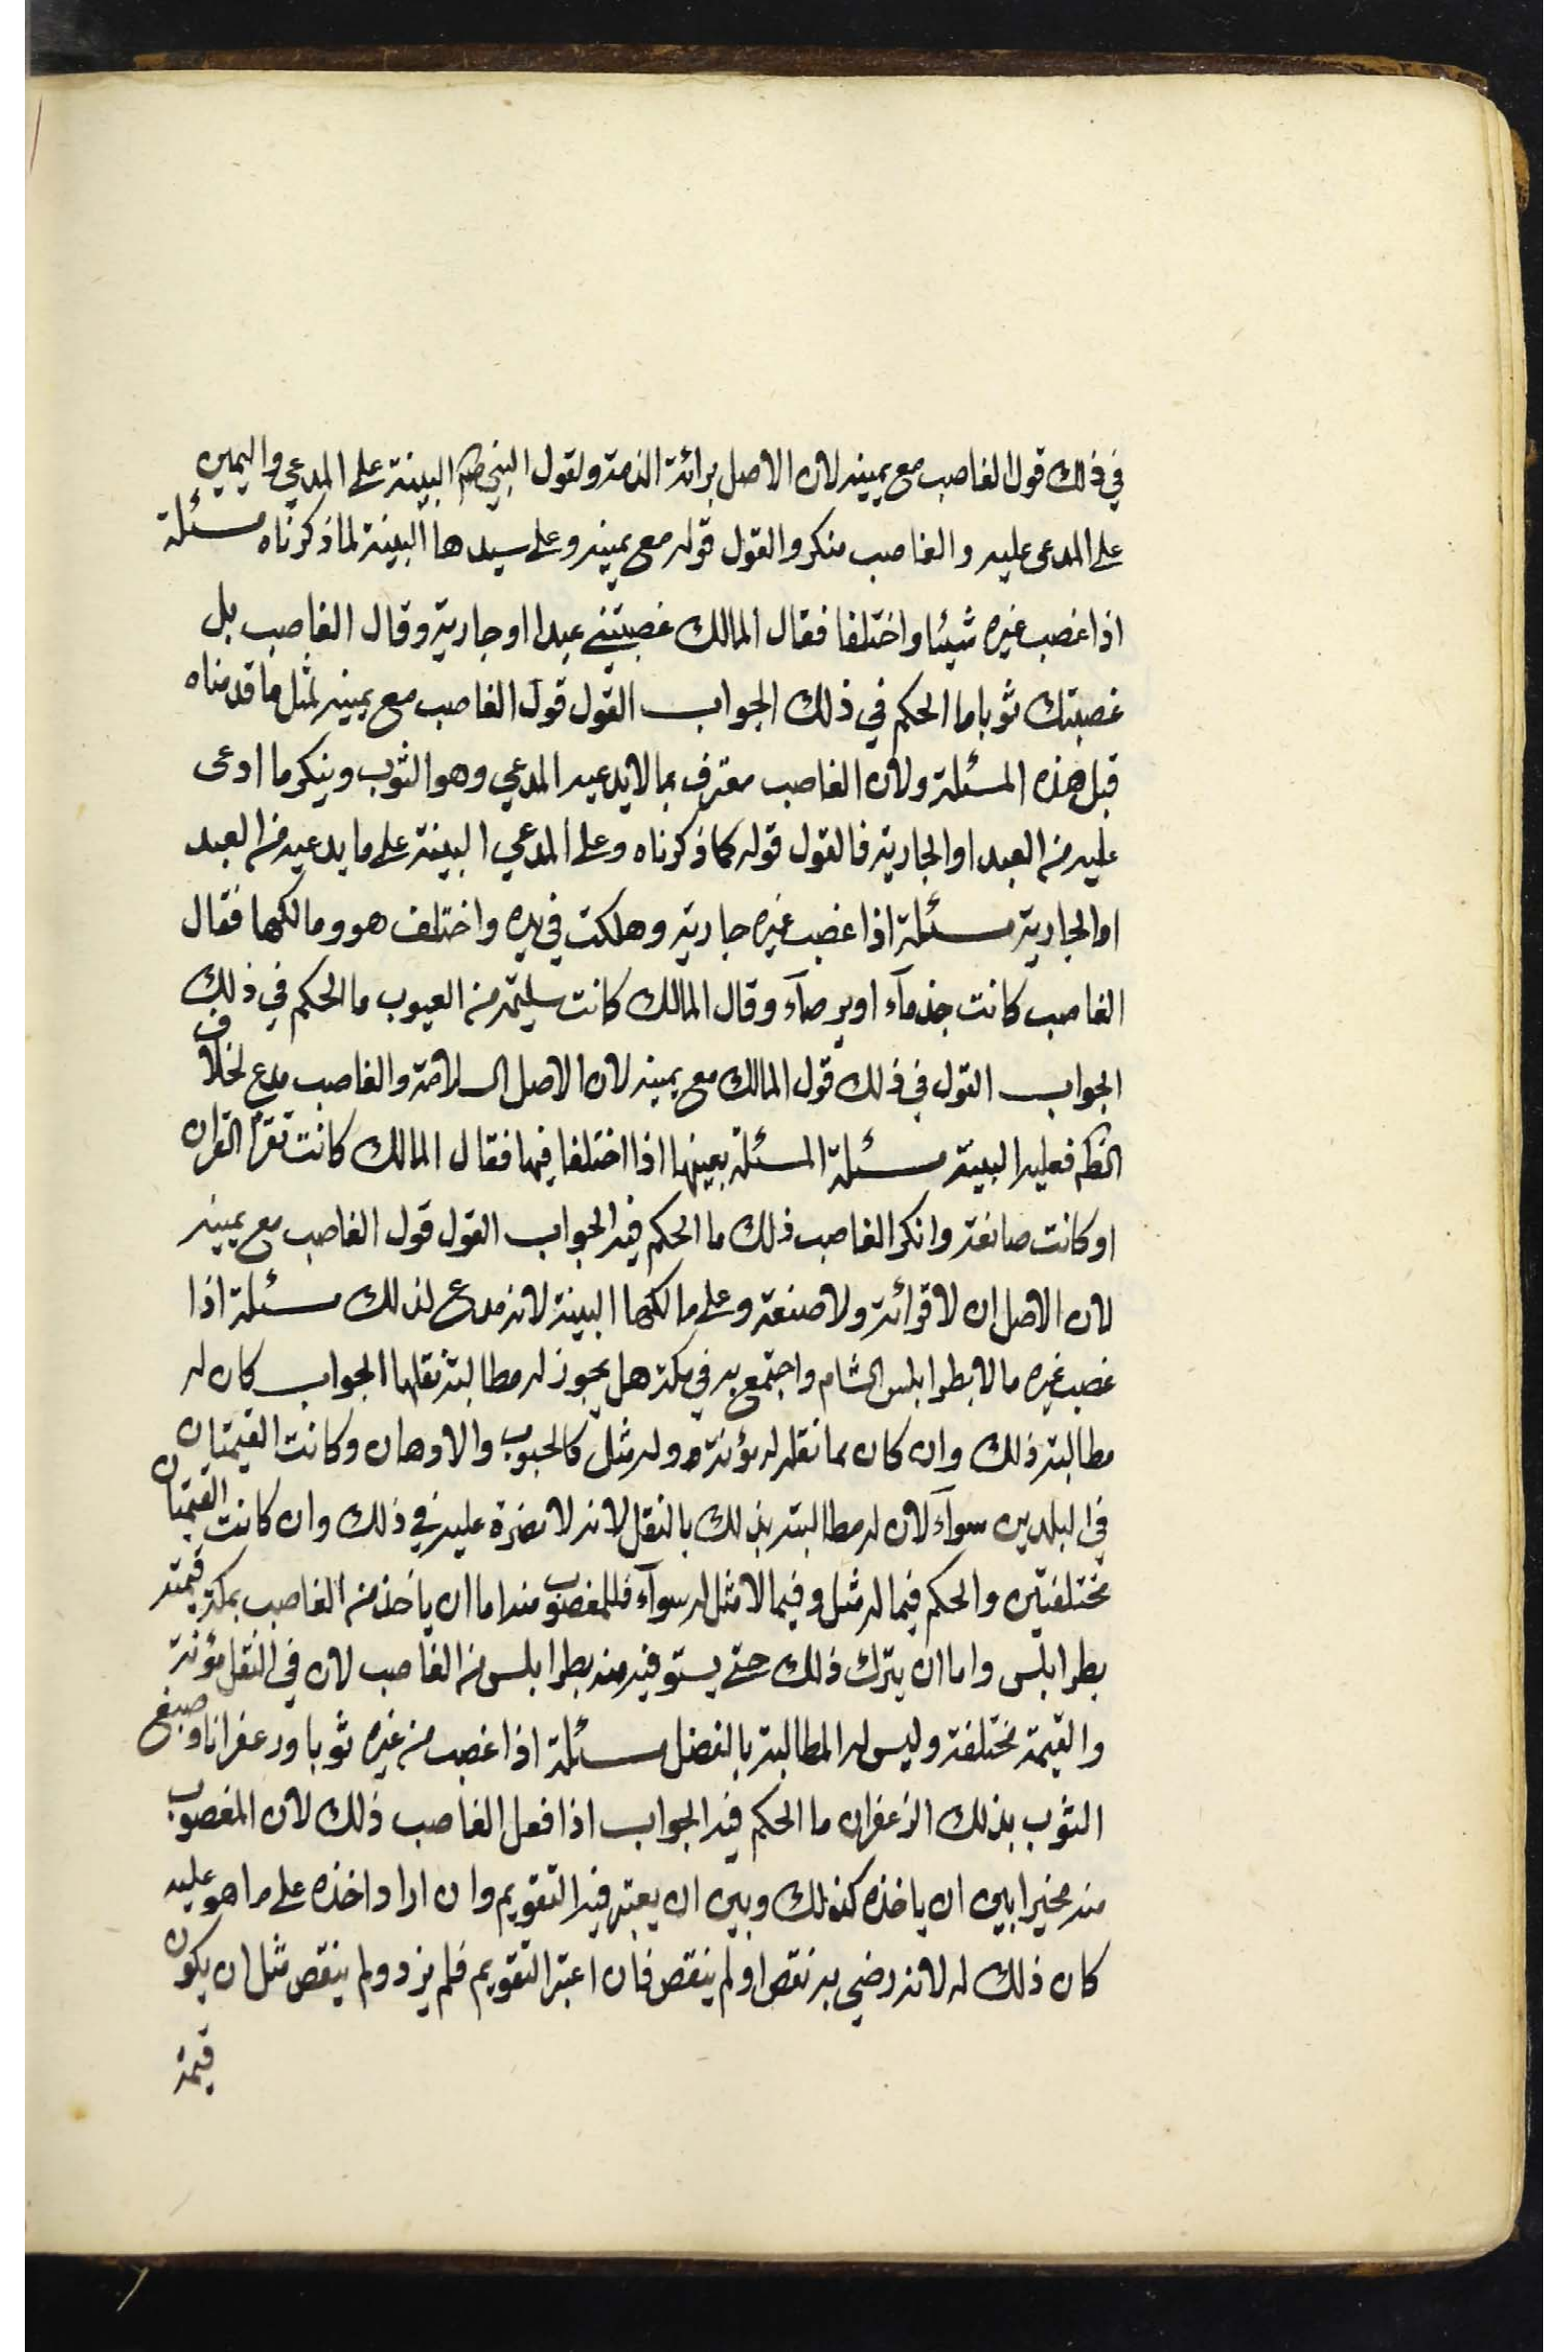 في ذلك قول الغاصب مع يمينه لان الاصل برائة الذمة ولقول النبي صلم البينة على المدعي واليمين
على المدعى عليه والغاصب منكر والقول قوله مع يمينه وعلى سيدها البينة لما ذكرناه مسئلة
اذا غصب غيره شيئا واختلفا فقال المالك غصبتني عبدا او جارية وقال الغاصب بل
غصبتك ثوبا ما الحكم في ذلك الجواب القول قول الغاصب مع يمينه لمثل ما قدمناه
قبل هذه المسئلة ولان الغاصب معترف بما لا يدعيه المدعي وهو الثوب وينكر ما ادعى
عليه من العبد او الجارية فالقول قوله كما ذكرناه وعلى المدعي البينة على ما يدعيه من العبد
او الجارية مسئلة اذا غصب غيره جارية وهلكت في يده واختلف هو ومالكها فقال
الغاصب كانت جذمآء او برصآء وقال المالك كانت سليمة من العيوب ما الحكم في ذلك
الجواب القول في ذلك قول المالك مع يمينه لان الاصل السلامة والغاصب مدع لخلاف
الظم فعليه البينة مسئلة المسئلة بعينها اذا اختلفا فيها فقال المالك كانت تقرأ القران
او كانت صانعة وانكر الغاصب ذلك ما الحكم فيه الجواب القول قول الغاصب مع يمينه
لان الاصل ان لا قرائة ولا صنعة وعلى مالكها البينة لانه مدع لذلك مسئلة اذا
غصب غيره مالا بطرابلس الشام واجتمع به في مكة هل يجوز له مطالبته بنقلها الجواب كان له
مطالبته ذلك وان كان مما نقله له مؤنة وله مثل كالحبوب والادهان وكانت القيمتان
في البلدين سوآء لان له مطالبته بذلك بالنقل لانه لا مضرة عليه في ذلك وان كانت القيمتان
مختلفتين والحكم فيما له مثل وفيما لا مثل له سوآء فللمغصوب منه اما ان ياخذ من الغاصب بمكة قيمته
بطرابلس واما ان يترك ذلك حتى يستوفيه منه بطرابلس من الغاصب لان في النقل مؤنة
والقيمة مختلفة وليس له المطالبة بالفضل مسئلة اذا غصب من غيره ثوبا وزعفرانا وصبغ
الثوب بذلك الزعفران ما الحكم فيه الجواب اذا فعل الغاصب ذلك لان المغصوب
منه مخيرا بين ان ياخذه كذلك وبين ان يعتبر فيه التقويم وان اراد اخذه على ما هو عليه
كان ذلك له لانه رضي به نقص او لم ينقص فان اعتبر التقويم فلم يزد ولم ينقص مثل ان يكون
قيمة